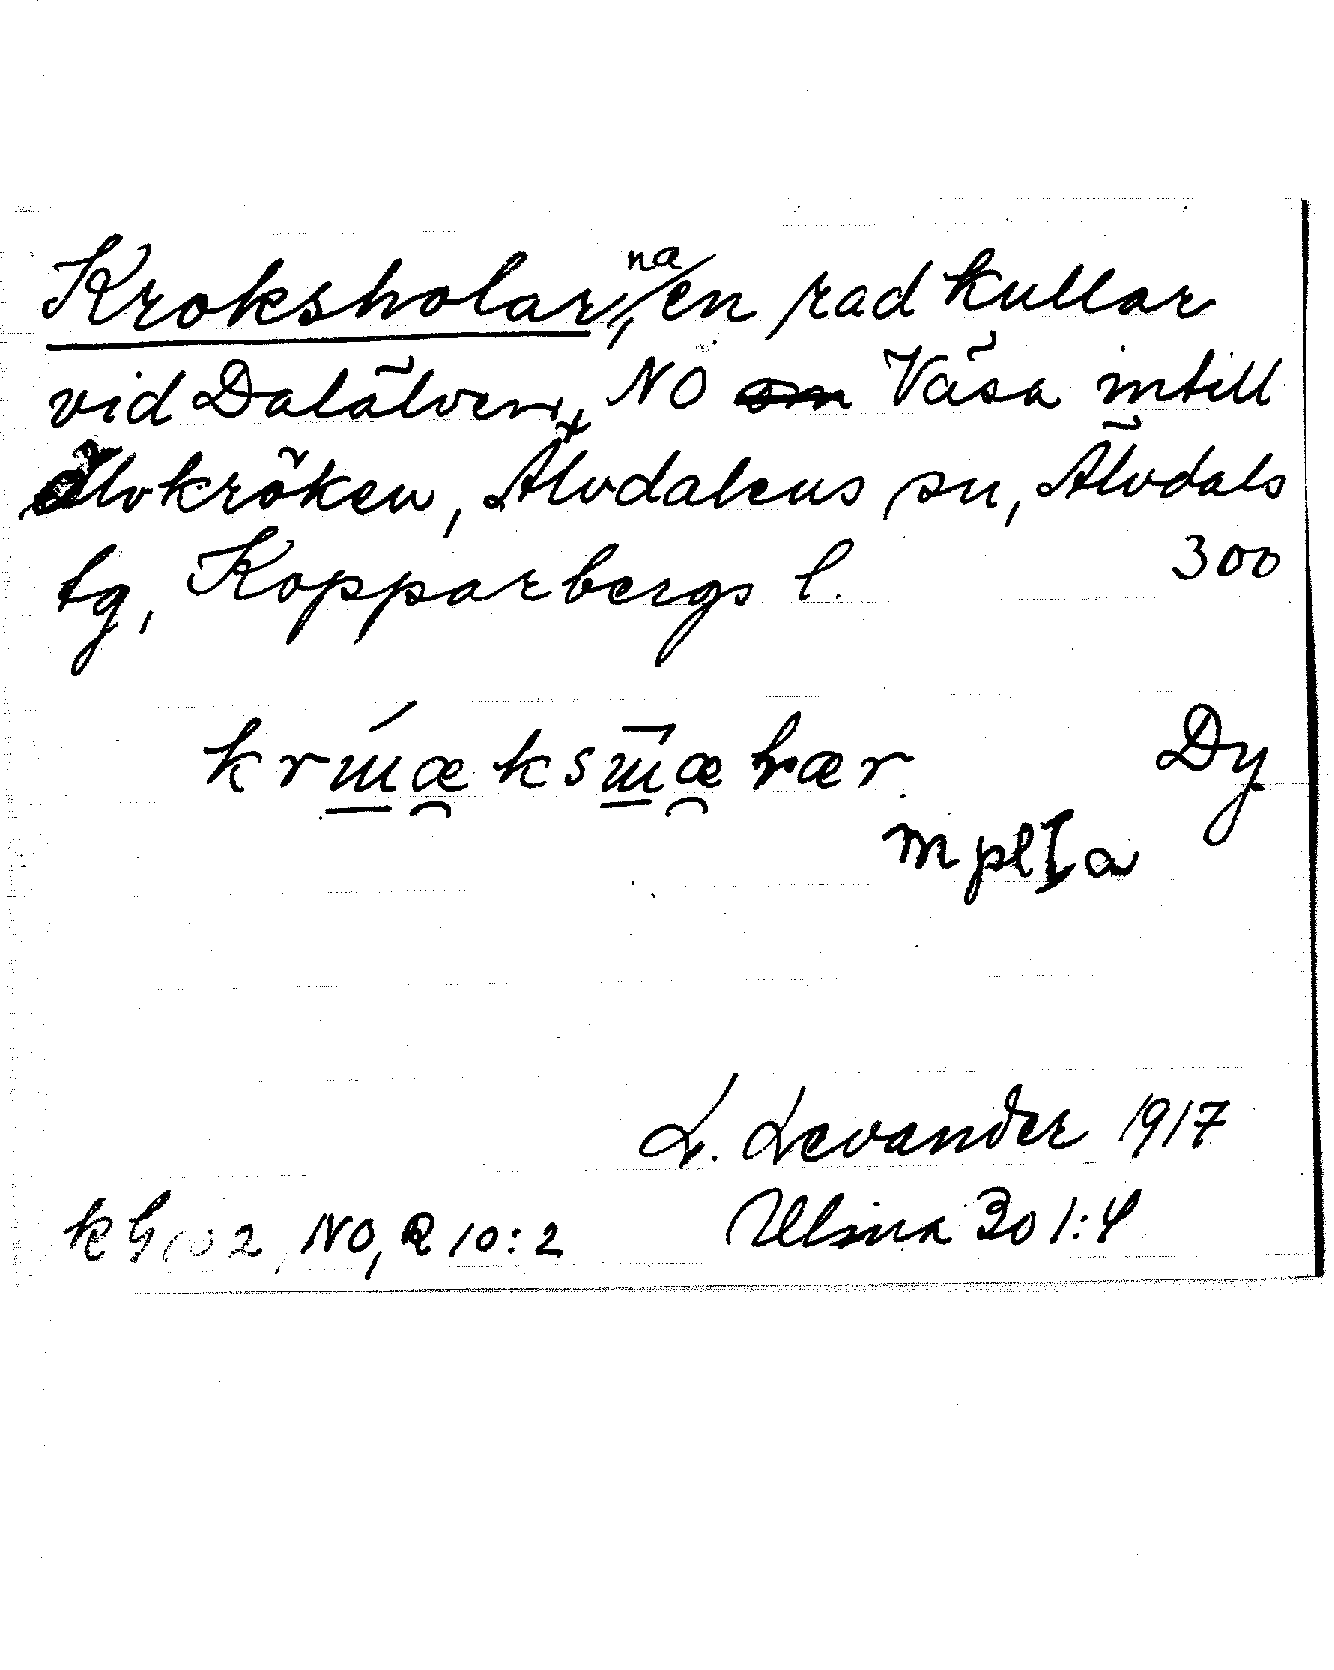 Kroksholarna, en rad kullar
vid Dalälven, NO Väsa intill
älvkröken, Älvdalens sn, Älvdals
tg, Kopparbergs l. 300
Dy
m pl I a
L. Levander 1917
Ulma 301:4
NO, R 10:2